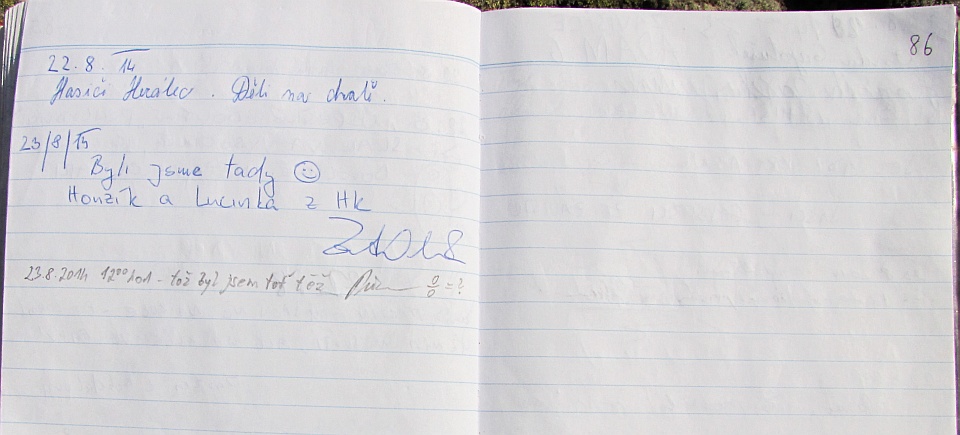 22.8. 14
Hasiči Hrádec. Děti na chatě.
23/8/15
Byli jsme tady ☺
Honzík a Lucinka z HK
23.8.2014 12⁰⁰ hod - tož byl jsem toť těž 0/0 = ?
86